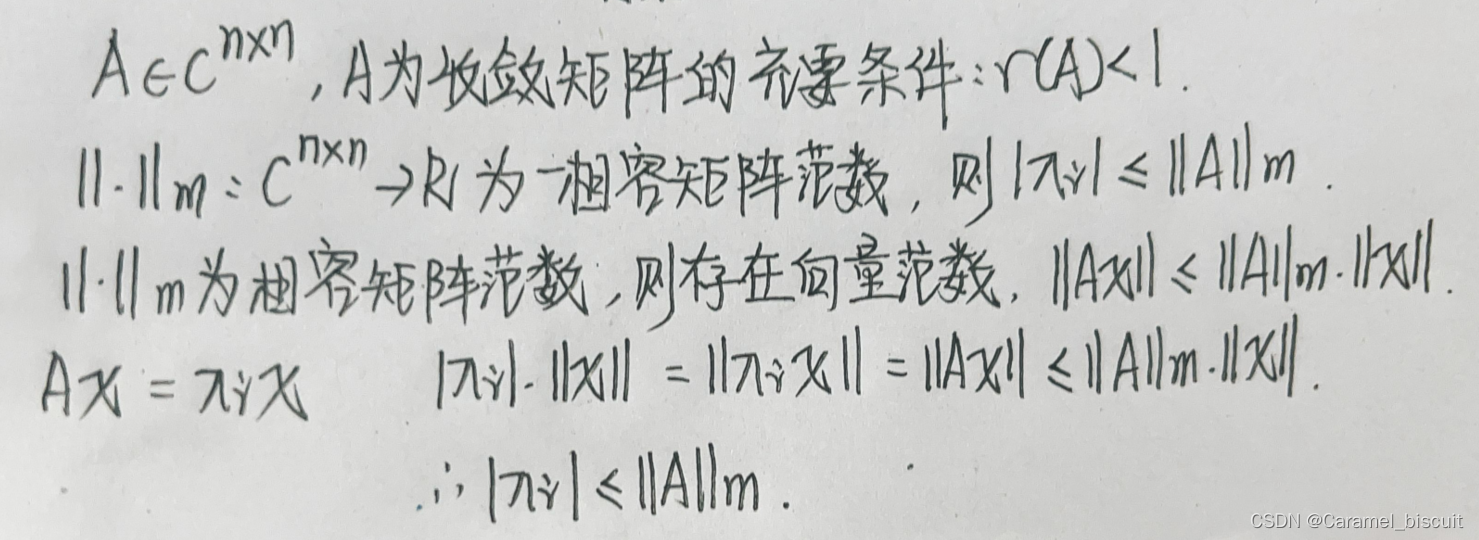 A∈C^{n×n}, A为收敛矩阵的充要条件:r(A)<1.
||·||m : C^{n×n}→R 为一相容矩阵范数, 则 |λi| ≤ ||A||m.
||·||m为相容矩阵范数, 则存在向量范数, ||Ax|| ≤ ||A||m·||x||.
Ax = λix |λi|·||x|| = ||λix|| = ||Ax|| ≤ ||A||m·||x||.
∴ |λi| ≤ ||A||m.
CSDN @Caramel_biscuit